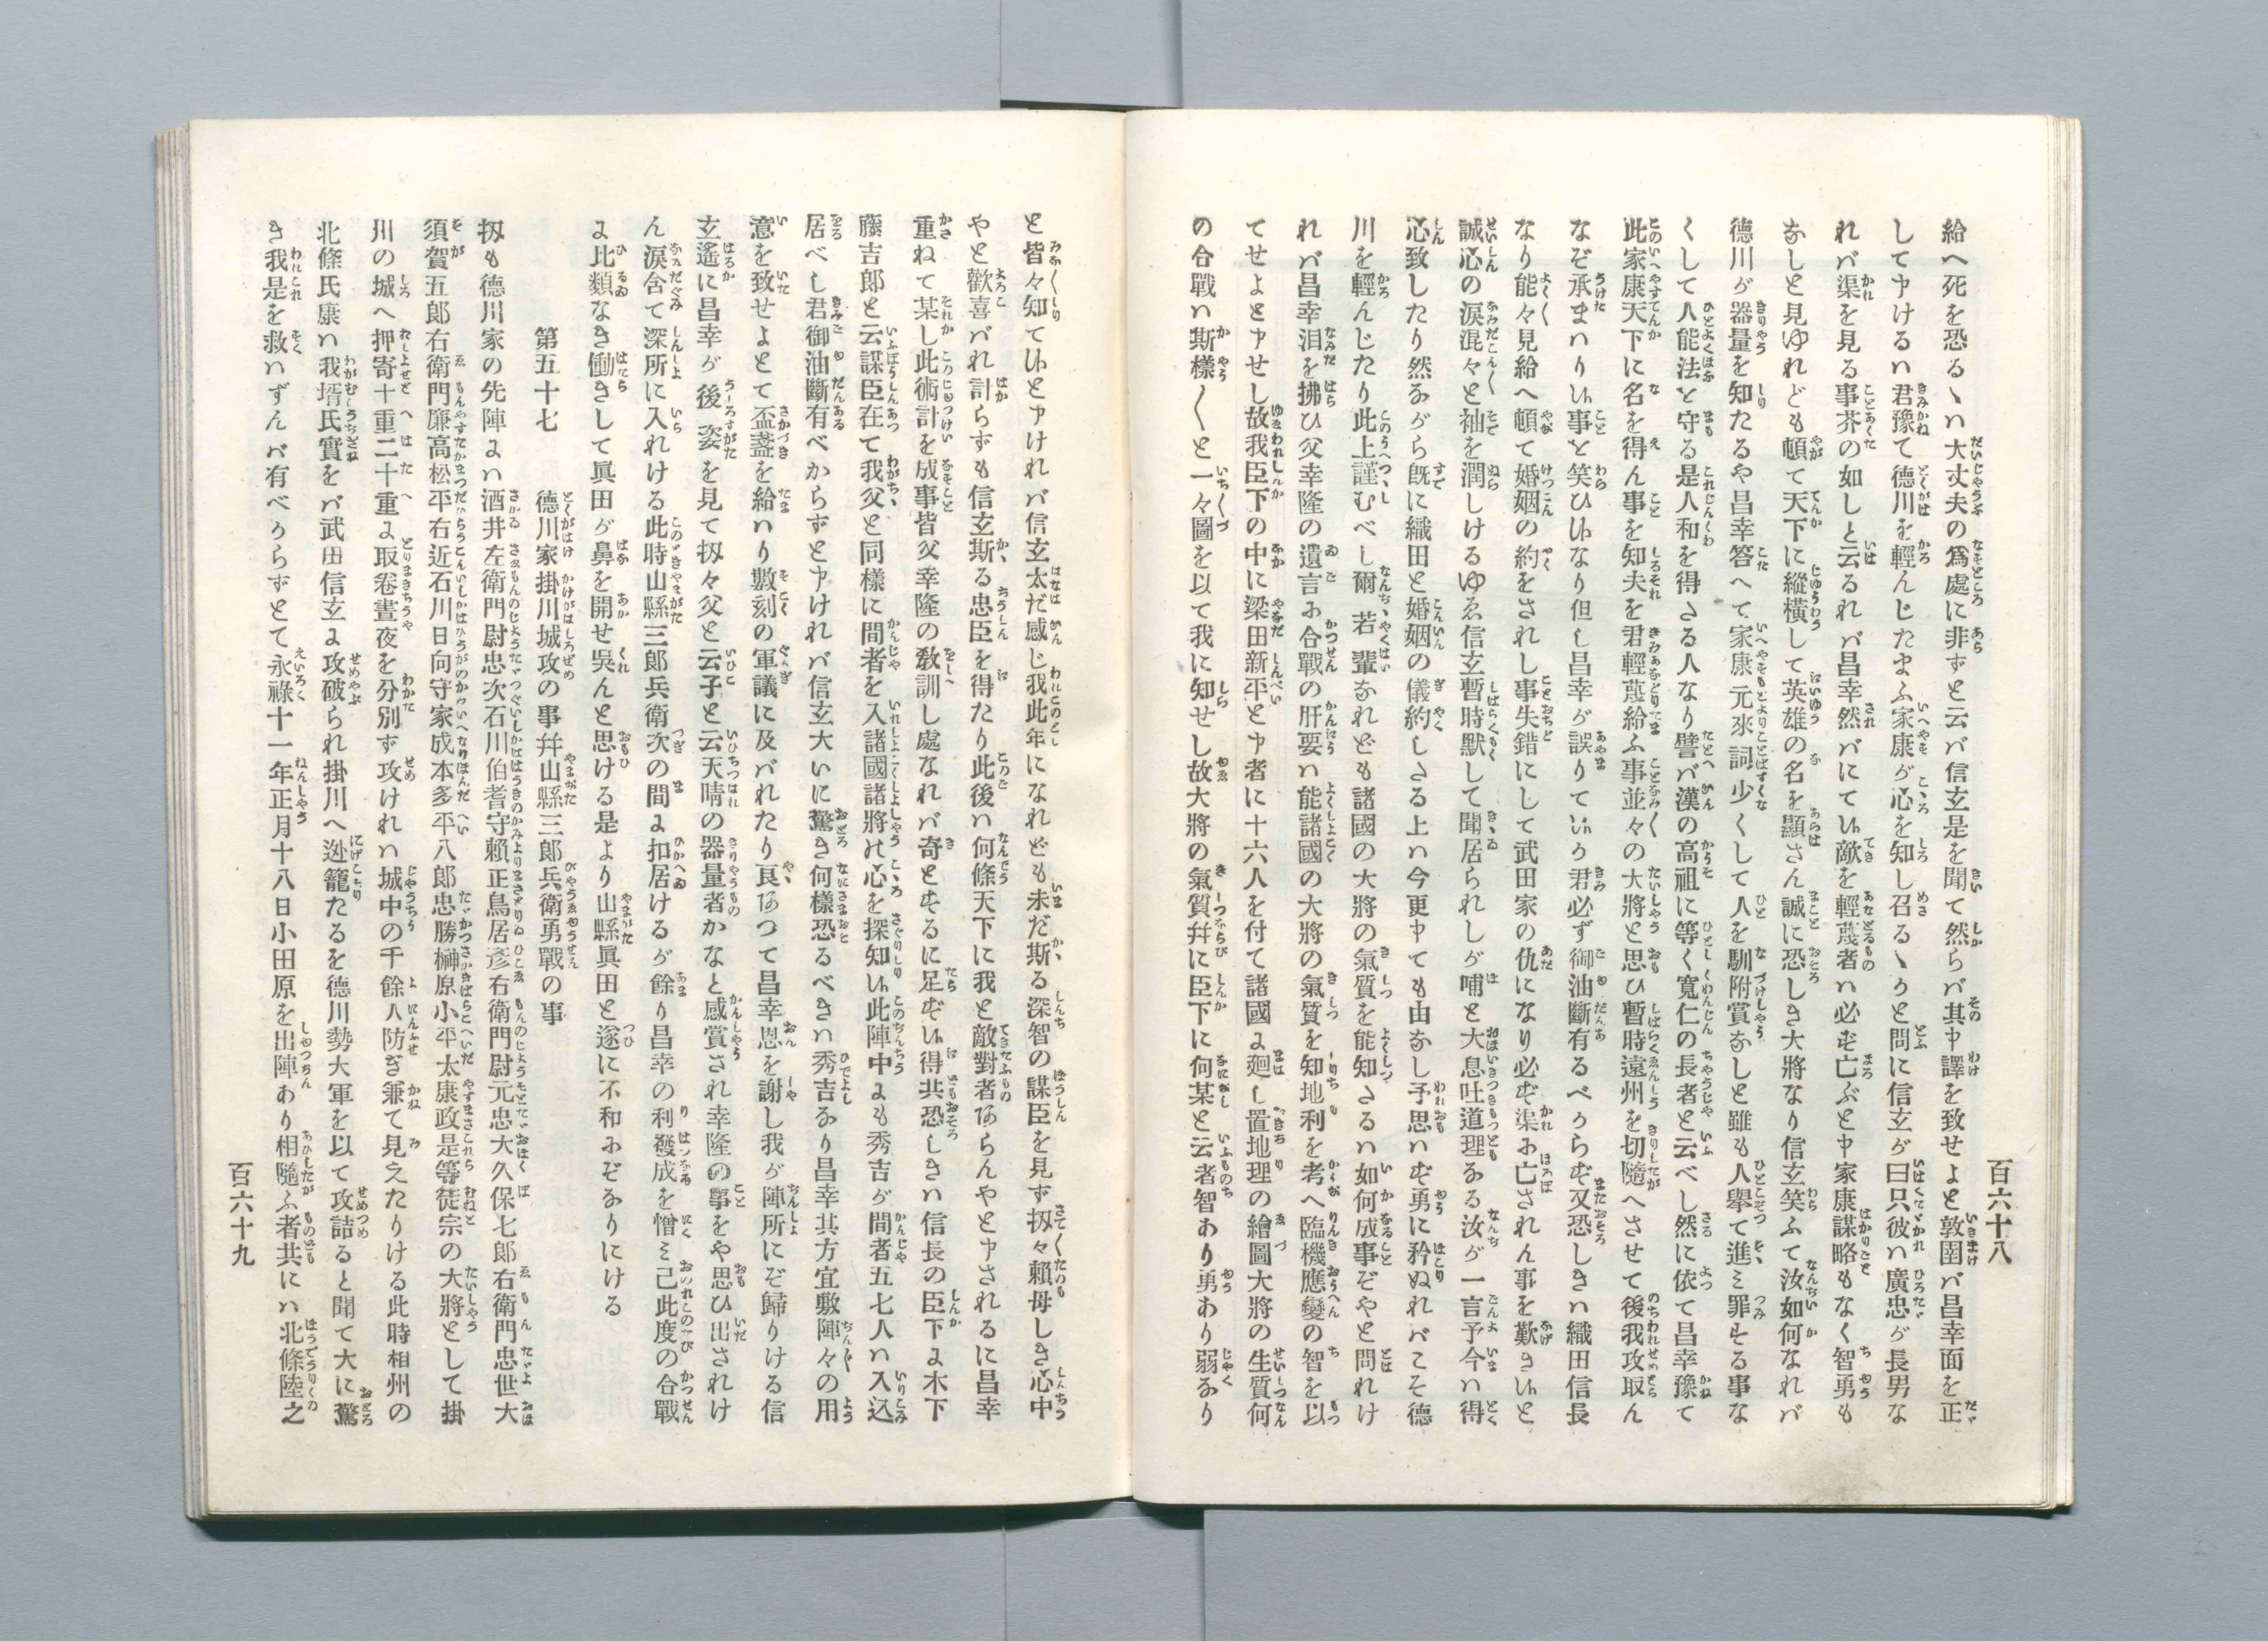 百六十八
給へ死を恐るヽハ大丈夫の爲處に非ずと云バ信玄是を聞て然らバ其申譯を致せよと敦圉バ昌幸面を正
して申けるハ君豫て德川を輕んじたまふ家康が心を知し召るヽかと問に信玄が曰只彼ハ廣忠が長男な
れバ渠を見る事芥の如しと云るれバ昌幸然バにて候敵を輕蔑者ハ必ず亡ぶと申家康謀略もなく智勇も
なしと見ゆれども頓て天下に縱橫して英雄の名を顯さん誠に恐しき大將なり信玄笑ふて汝如何なれバ
德川が器量を知たるや昌幸答へて家康元來詞少くして人を馴附賞なしと雖も人擧て進ミ罪する事な
くして人能法を守る是人和を得さる人なり譬バ漢の高祖に等く寬仁の長者と云べし然に依て昌幸豫て
此家康天下に名を得ん事を知夫を君輕蔑給ふ事並々の大將と思ひ暫時遠州を切隨へさせて後我攻取ん
なぞ承まハり候事を笑ひ候なり但し昌幸が誤りて候か君必ず御油斷有るべからず又恐しきハ織田信長
なり能々見給へ頓て婚姻の約をされし事失錯にして武田家の仇になり必ず渠に亡されん事を歎き候と
誠心の涙混々と袖を潤しけるゆゑ信玄暫時默して聞居られしが哺と大息吐道理なる汝が一言予今ハ得
心致したり然ながら既に織田と婚姻の儀約しさる上ハ今更申ても由なし予思ハず勇に矜ぬれバこそ德
川を輕んじたり此上謹むべし爾若輩なれども諸國の大將の氣質を能知さるハ如何成事ぞやと問れけ
れバ昌幸泪を拂ひ父幸隆の遺言に合戰の肝要ハ能諸國の大將の氣質を知地利を考へ臨機應變の智を以
てせよと申せし故我臣下の中に梁田新平と申者に十六人を付て諸國に廻し置地理の繪圖大將の生質何
の合戰ハ斯樣〱と一々圖を以て我に知せし故大將の氣質幷に臣下に何某と云者智あり勇あり弱なり
と皆々知て候と申けれバ信玄太だ感じ我此年になれども未だ斯る深智の謀臣を見ず扨々賴母しき心中
やと歡喜バれ計らずも信玄斯る忠臣を得たり此後ハ何條天下に我と敵對者あらんやと申されるに昌幸
重ねて某し此術計を成事皆父幸隆の敎訓し處なれバ奇とするに足ず候得共恐しきハ信長の臣下に木下
藤吉郞と云謀臣在て我父と同樣に間者を入諸國諸將の心を探知候此陣中にも秀吉が間者五七人ハ入込
居べし君御油斷有べからずと申けれバ信玄大いに驚き何樣恐るべきハ秀吉なり昌幸其方宜敷陣々の用
意を致せよとて盃盞を給ハり數刻の軍議に及バれたり良あつて昌幸恩を謝し我が陣所にぞ歸りける信
玄遙に昌幸が後姿を見て扨々父と云子と云天晴の器量者かなと感賞され幸隆の事をや思ひ出されけ
ん涙含て深所に入れける此時山縣三郞兵衛次の間に扣居けるが餘り昌幸の利發成を憎ミ己此度の合戰
に比類なき働きして眞田が鼻を開せ吳んと思ける是より山縣眞田と遂に不和にぞなりにける
第五十七　德川家掛川城攻の事幷山縣三郞兵衛勇戰の事
扨も德川家の先陣にハ酒井左衛門尉忠次石川伯耆守賴正鳥居彥右衛門尉元忠大久保七郞右衛門忠世大
須賀五郞右衛門廉高松平右近石川日向守家成本多平八郞忠勝榊原小平太康政是等徒宗の大將として掛
川の城へ押寄十重二十重に取卷晝夜を分別ず攻けれハ城中の千餘人防ぎ兼て見えたりける此時相州の
北條氏康ハ我壻氏實をバ武田信玄に攻破られ掛川へ迯籠たるを德川勢大軍を以て攻詰ると聞て大に驚
き我是を救ハずんバ有べからずとて永祿十一年正月十八日小田原を出陣あり相隨ふ者共にハ北條陸之
百六十九